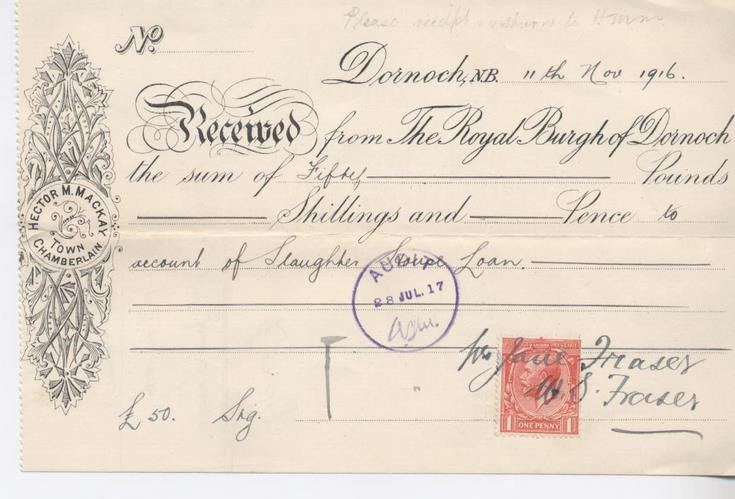 Please receipt & return to H.M.M.
No.
Dornoch, N.B. 11th Nov 1916.
Received from The Royal Burgh of Dornoch
the sum of Fifty Pounds
Shillings and Pence to
account of Slaughter House Loan.
HECTOR M. MACKAY
TOWN
CHAMBERLAIN
AUDIT
28 JUL. 17
per Jane Fraser
W. S. Fraser
£50. Sig.
1 ONE PENNY 1